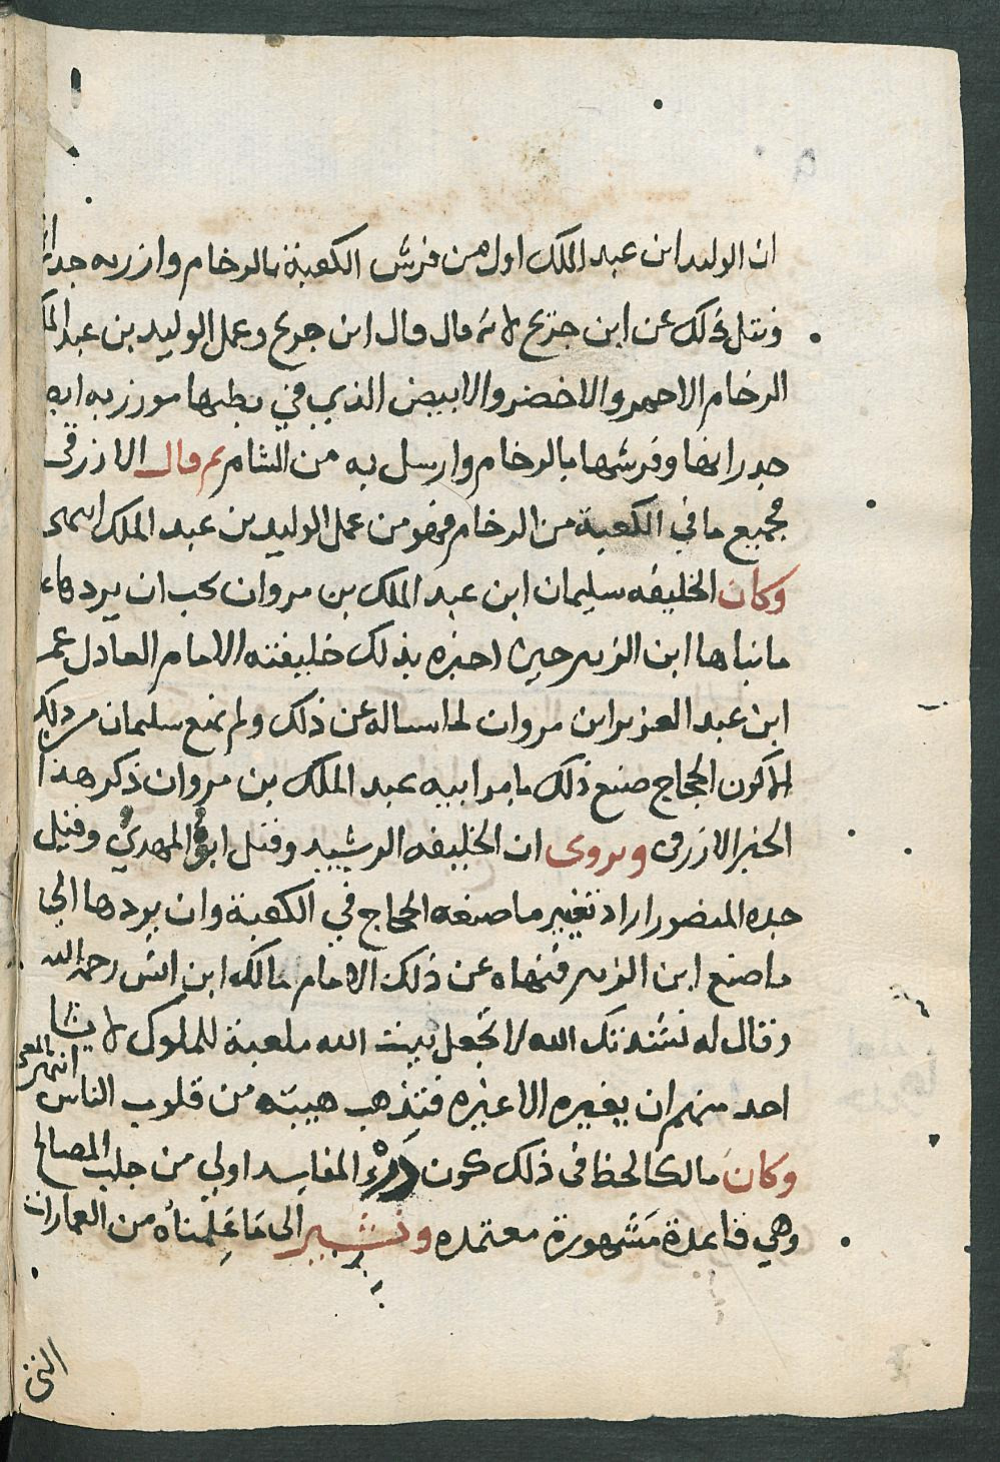 ان الوليد ابن عبد الملك اول من فرش الكعبة بالرخام وازر به
ونقل ذلك عن ابن جريج لانه قال قال ابن جريج وعمل الوليد بن عبد الملك
الرخام الاحمر والاخضر والابيض الذي في بطنها موزر به
جدرانها وفرشها بالرخام وارسل به من الشام ثم قال الازرقي
فجميع ما في الكعبة من الرخام فهو من عمل الوليد بن عبد الملك انتهى
وكان الخليفه سليمان ابن عبد الملك بن مروان يحب ان يردها
ما بناها ابن الزبير حين اخبره بذلك خليفته الامام العادل عمر
ابن عبد العزيز ابن مروان لما ساله عن ذلك ولم يمنع سليمان من ذلك
الا كون الحجاج صنع ذلك بامر ابيه عبد الملك بن مروان ذكر هذا
الخبر الازرقي ويروى ان الخليفه الرشيد وقيل ابوه المهدي وقيل
جده المنصور اراد تغيير ما صنعه الحجاج في الكعبة وان يردها الي
ما صنع ابن الزبير فنهاه عن ذلك الامام مالك ابن انس رحمه الله
وقال له نشدتك الله لا تجعل بيت الله ملعبة للملوك لا يشا
احد منهم ان يغيره الا غيره فتذهب هيبته من قلوب الناس انتهى
وكان مالكا لحظ في ذلك كون درء المفاسد اولي من جلب المصالح
وهي قاعدة مشهورة معتمده ونشير الى ما علمناه من العمارات
التي